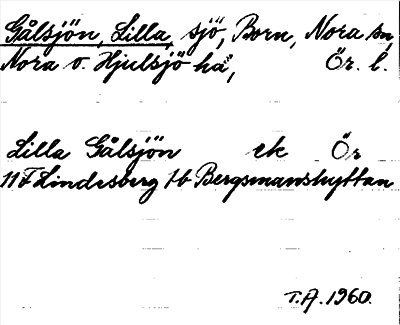 Gålsjön, Lilla, sjö, Born, Nora sn,
Nora o. Hjulsjö hd, Ör. l.
Lilla Gålsjön ek Ör
11 F Lindesberg 7b Bergsmanshyttan
T.A. 1960.